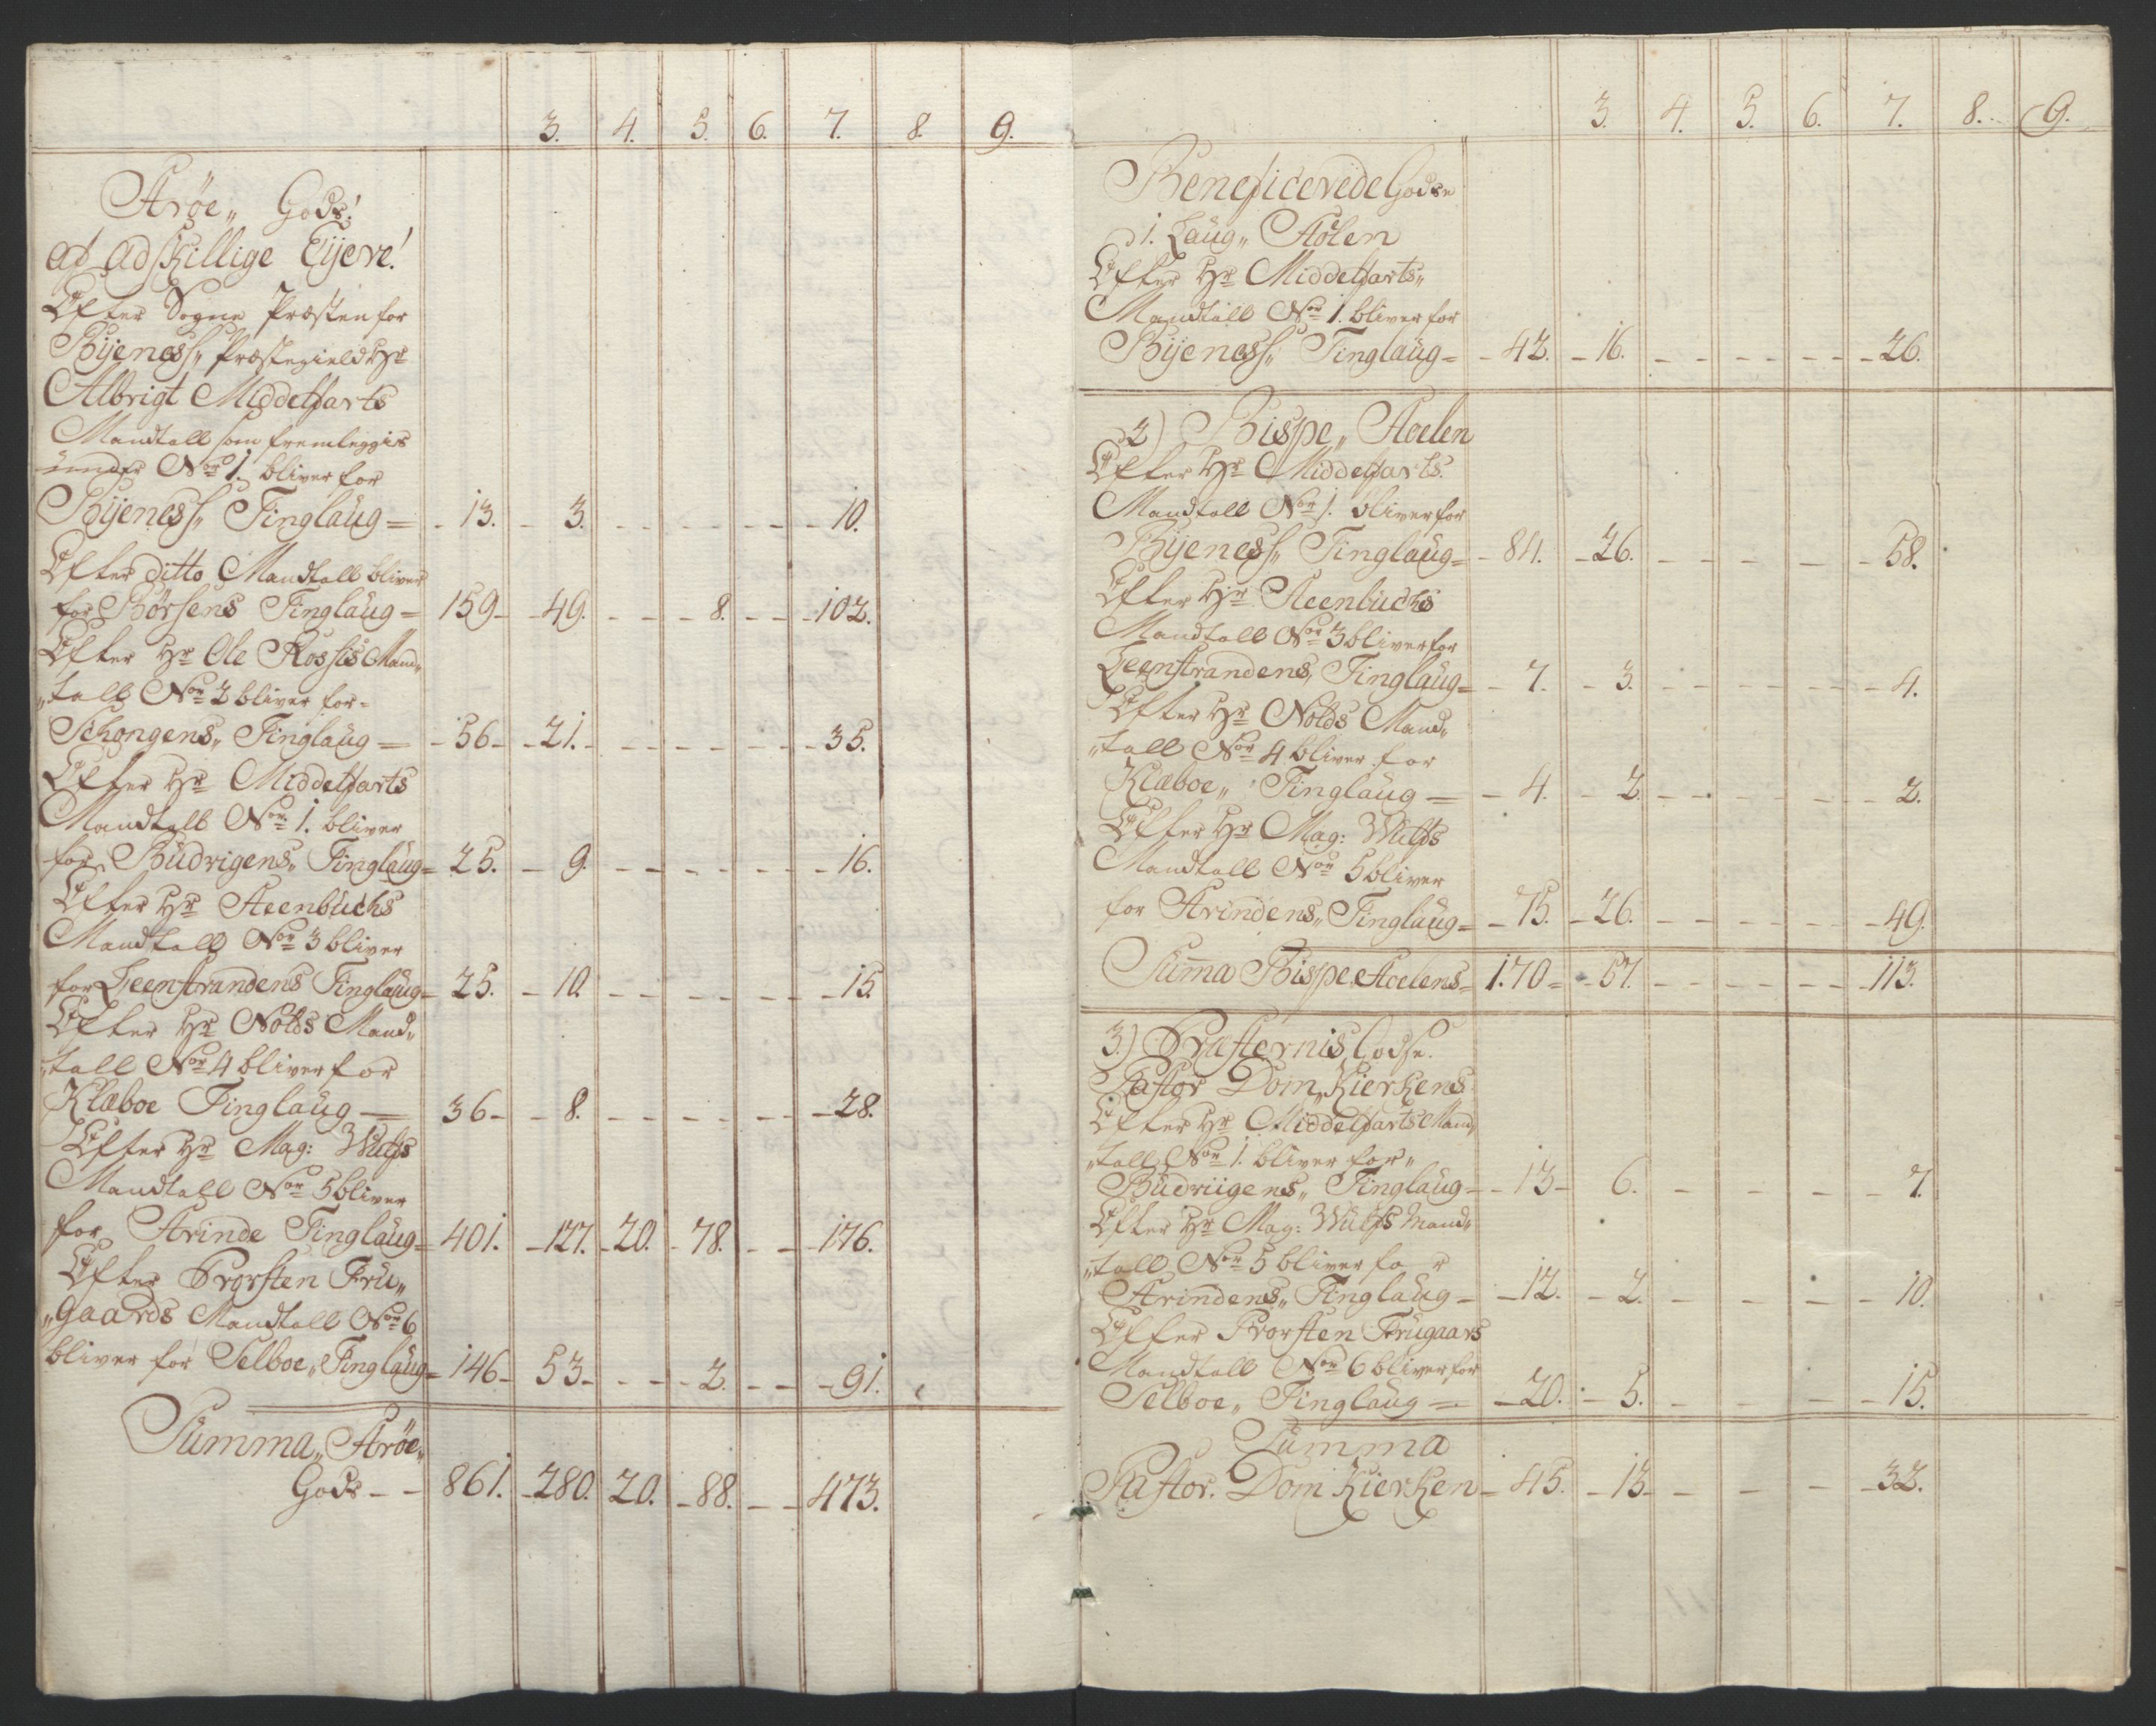 3. 4. 5. 6. 7. 8. 9.
Strøe„ Gods!
af adskillige Eijere!
Efter Sogne Præsten for
Bijeness„ Præstegield Hr
Albrigt Middelfarts
Mandtall som fremleggis
under Nor 1. bliver for
Bijeness„ Tinglaug = - 13. - 3. - - - - - - 10.
Efter ditto Mandtall bliver
for Børsens Tinglaug = 159 - - 49. - - - 8. - - - 102.
Efter Hr Ole Rossis Mand„
„tall Nor 2 bliver for -
Schongens„ Tinglaug = - 56 - - 21. - - - - - - - 35.
Efter Hr Middelfarts
Mandtall Nor 1. bliver
for Budrigens„ Tinglaug = 25. - 9. - - - - - - 16.
Efter Hr Steenbuchs
Mandtall Nor 3 bliver
for Leenstrandens Tinglaug - 25. - 10. - - - - - - 15.
Efter Hr Nolds Mand„
„tall Nor 4 bliver for
Klæboe Tinglaug — 36 - - 8. - - - - - - 28.
Efter Hr Mag: Wulfs
Mandtall Nor 5 bliver
for Strinde Tinglaug = 401. - 127. - 20. - 78. - - - 176.
Efter Provsten Fru„
„gaards Mandtall Nor 6
bliver for Selboe„ Tinglaug = 146 - 53 - - - - 2. - - - 91.
Summa„ Strøe„
Gods - - 861. - 280. 20. - 88. - - 473.
3. 4. 5. 6. 7. 8. 9.
Beneficerede Godse
1. Laug„ Stolen
Efter Hr Middelfarts„
Mandtall Nor 1. bliver for
Bijeness„ Tinglaug = - 42. - 16. - - - - - - - 26.
2) Bispe„ Stoelen
Efter Hr Middelfarts.
Mandtall Nor 1. bliver for
Bijeness„ Tinglaug = - 84. - 26. - - - - - - 58.
Efter Hr Steenbuchs
Mandtall Nor 3 bliver for
Leenstrandens„ Tinglaug = - 7. - 3. - - - - - - - 4.
Efter Hr Nolds Mand„
„tall Nor 4 bliver for
Klæboe„ Tinglaug — - 4. - 2. - - - - - - 2.
Efter Hr Mag: Wulfs
Mandtall Nor 5 bliver
for Strindens„ Tinglaug = - 75. - 26. - - - - - - 49.
Summa Bispe Stoelens = 170 = - 57. - - - - - - 113.
3.) Præsternis Godse.
Pastor Dom„ Kierkens
Efter Hr Middelfarts Mand„
„tall Nor 1. bliver for„
Budriigens„ Tinglaug - - 13 - 6. - - - - 7.
Efter Hr Mag: Wulfs Mand„
„tall Nor 5 bliver for
Strindens„ Tinglaug - - 12. - 2. - - - - 10.
Efter Provsten Frugaars
Mandtall Nor 6 bliver for
Selboe„ Tinglaug = - 20. - 5. - - - - 15.
Summa
Pastor. Dom Kierken - 45. - 13 - - - - - 32.